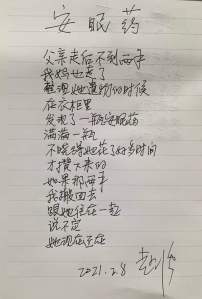 安眠药
父亲走后不到两年
我妈也走了
整理她遗物的时候
在衣柜里
发现了一瓶安眠药
满满一瓶
不晓得她花了好多时间
才攒下来的
如果那两年
我搬回去
跟她住在一起
说不定
她现在还在
2021.2.8